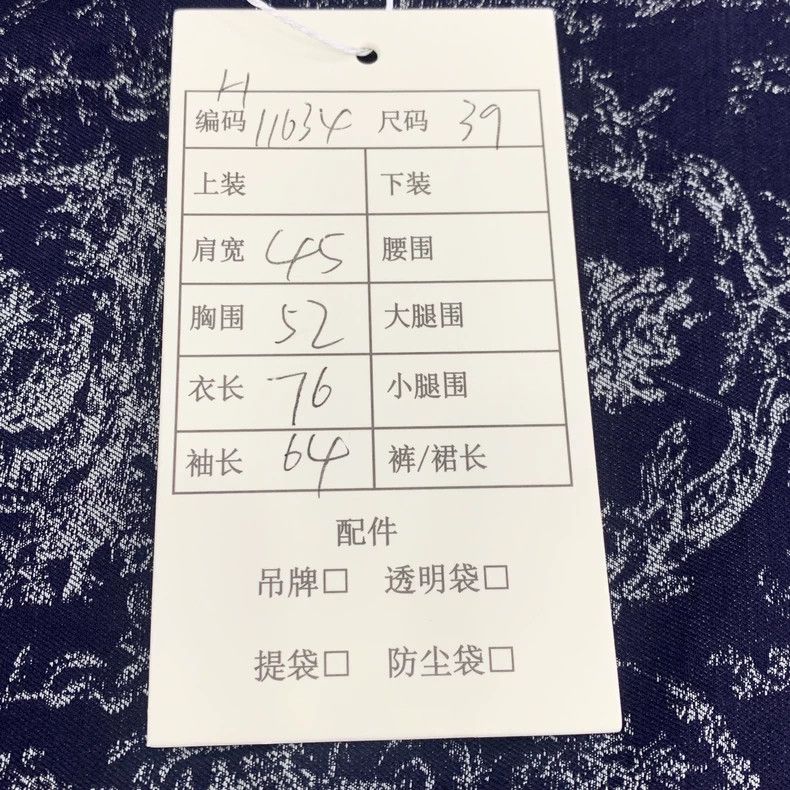 H
编码 11634 尺码 39
上装 下装
肩宽 45 腰围
胸围 52 大腿围
衣长 76 小腿围
袖长 64 裤/裙长
配件
吊牌□ 透明袋□
提袋□ 防尘袋□